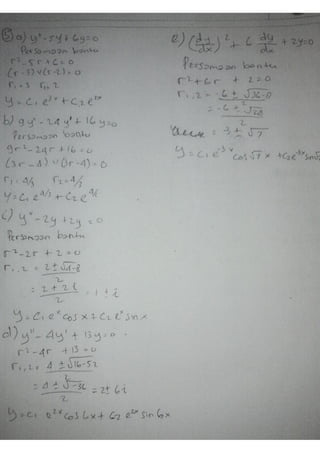 5) a) y" - 5y + 6y = 0
Persamaan bantu
r² - 5r + 6 = 0
(r-3) v (r-2) = 0
r₁ = 3 r₂ = 2
y = c₁ e³ˣ + c₂ e²ˣ
b) 9y" - 24 y' + 16 y = 0
Persamaan bantu
9r² - 24r + 16 = 0
(3r - 4) v (3r - 4) = 0
r₁ = 4/3 r₂ = 4/3
y = c₁ e^4/3 + c₂ e^4/3
c) y" - 2y + 2y = 0
Persamaan bantu
r² - 2r + 2 = 0
r₁,₂ = 2 ± √4-8 / 2
= 2 ± 2i / 2 = 1 ± i
y = c₁ eˣ cos x + c₂ eˣ sin x
d) y" - 4y' + 13y = 0
r² - 4r + 13 = 0
r₁,₂ = 4 ± √16-52 / 2
= 4 ± √-36 / 2 = 2 ± 6i
y = c₁ e²ˣ cos 6x + c₂ e²ˣ sin 6x
e) (dy/dx)² + 6 dy/dx + 2y = 0
Persamaan bantu
r² + 6r + 2 = 0
r₁,₂ = -6 ± √36-8 / 2
= -6 ± √28 / 2
= 3 ± √7
y = c₁ e⁻³ˣ cos √7 x + c₂ e⁻³ˣ sin √7